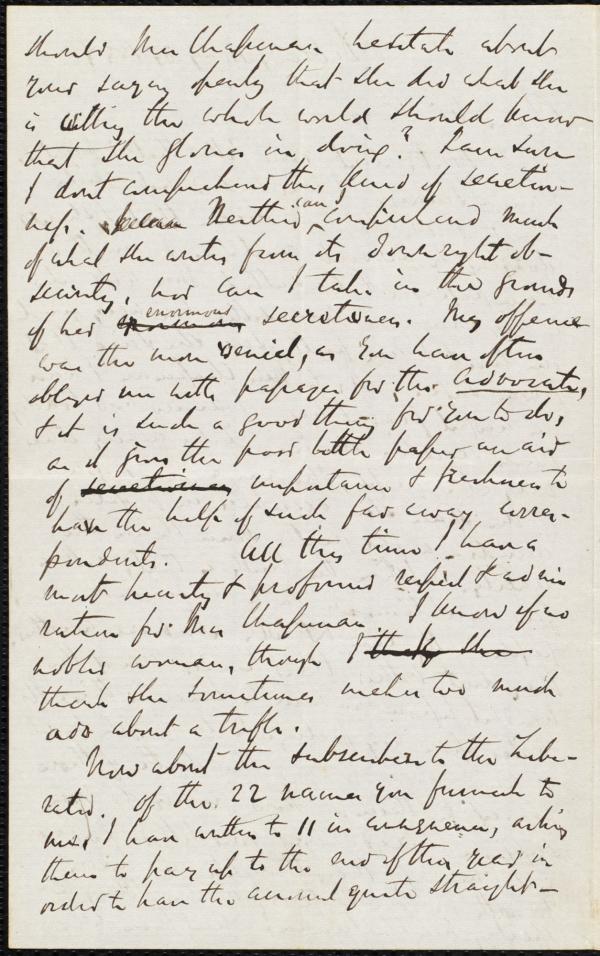 should Mrs Chapman hesitate about
your saying openly that she did what she
is willing the whole world should know
that she glories in doing? I am sure
I dont comprehend this kind of secretive-
ness. Neither can I comprehend much
of what she writes from its downright ob-
scurity, nor can I take in the grounds
of her enormous secretiveness. My offence
was the more venial, as you have often
obliged me with passages for the Advocate,
& it is such a good thing for you to do,
as it gives the poor little paper an air
of secretiveness importance & freshness to
have the help of such far away corres-
pondents. All this time I have a
most hearty & profound respect & admi
ration for Mrs Chapman. I know of no
nobler woman, though I think she
think she sometimes makes too much
ado about a trifle.
Now about the subscribers to the Libe-
rator. Of the 22 names you furnish to
me, I have written to 11 in consequence, asking
them to pay up to the end of the year in
order to have the account quite straight-